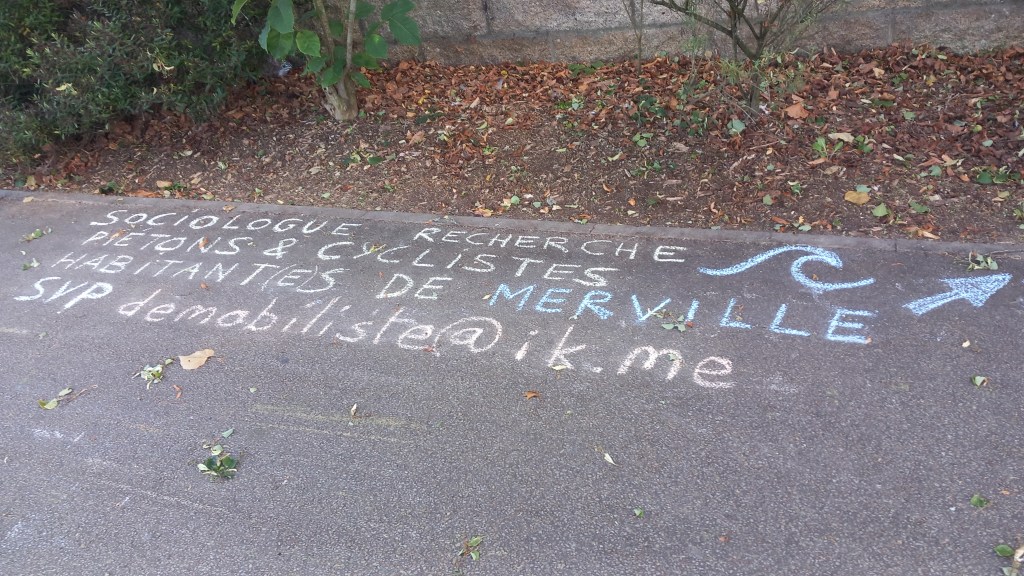 SOCIOLOGUE RECHERCHE
PIETONS & CYCLISTES
HABITANT(E)S DE MERVILLE
SVP demabiliste@ik.me